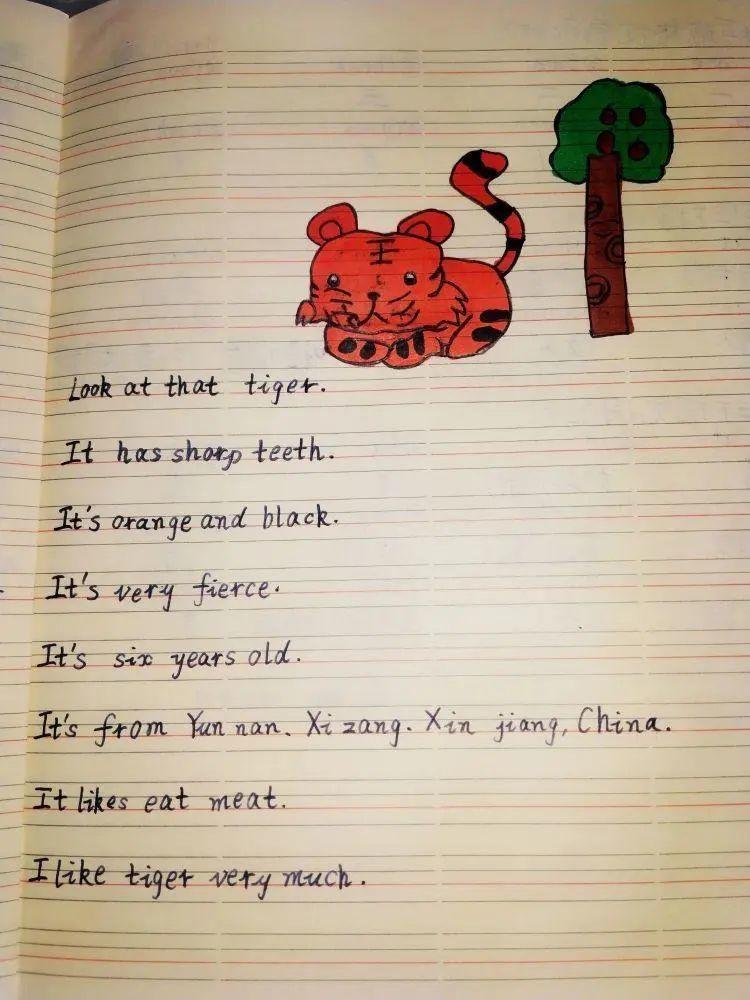 王
Look at that tiger.
It has sharp teeth.
It's orange and black.
It's very fierce.
It's six years old.
It's from Yun nan. Xi zang. Xin jiang, China.
It likes eat meat.
I like tiger very much.